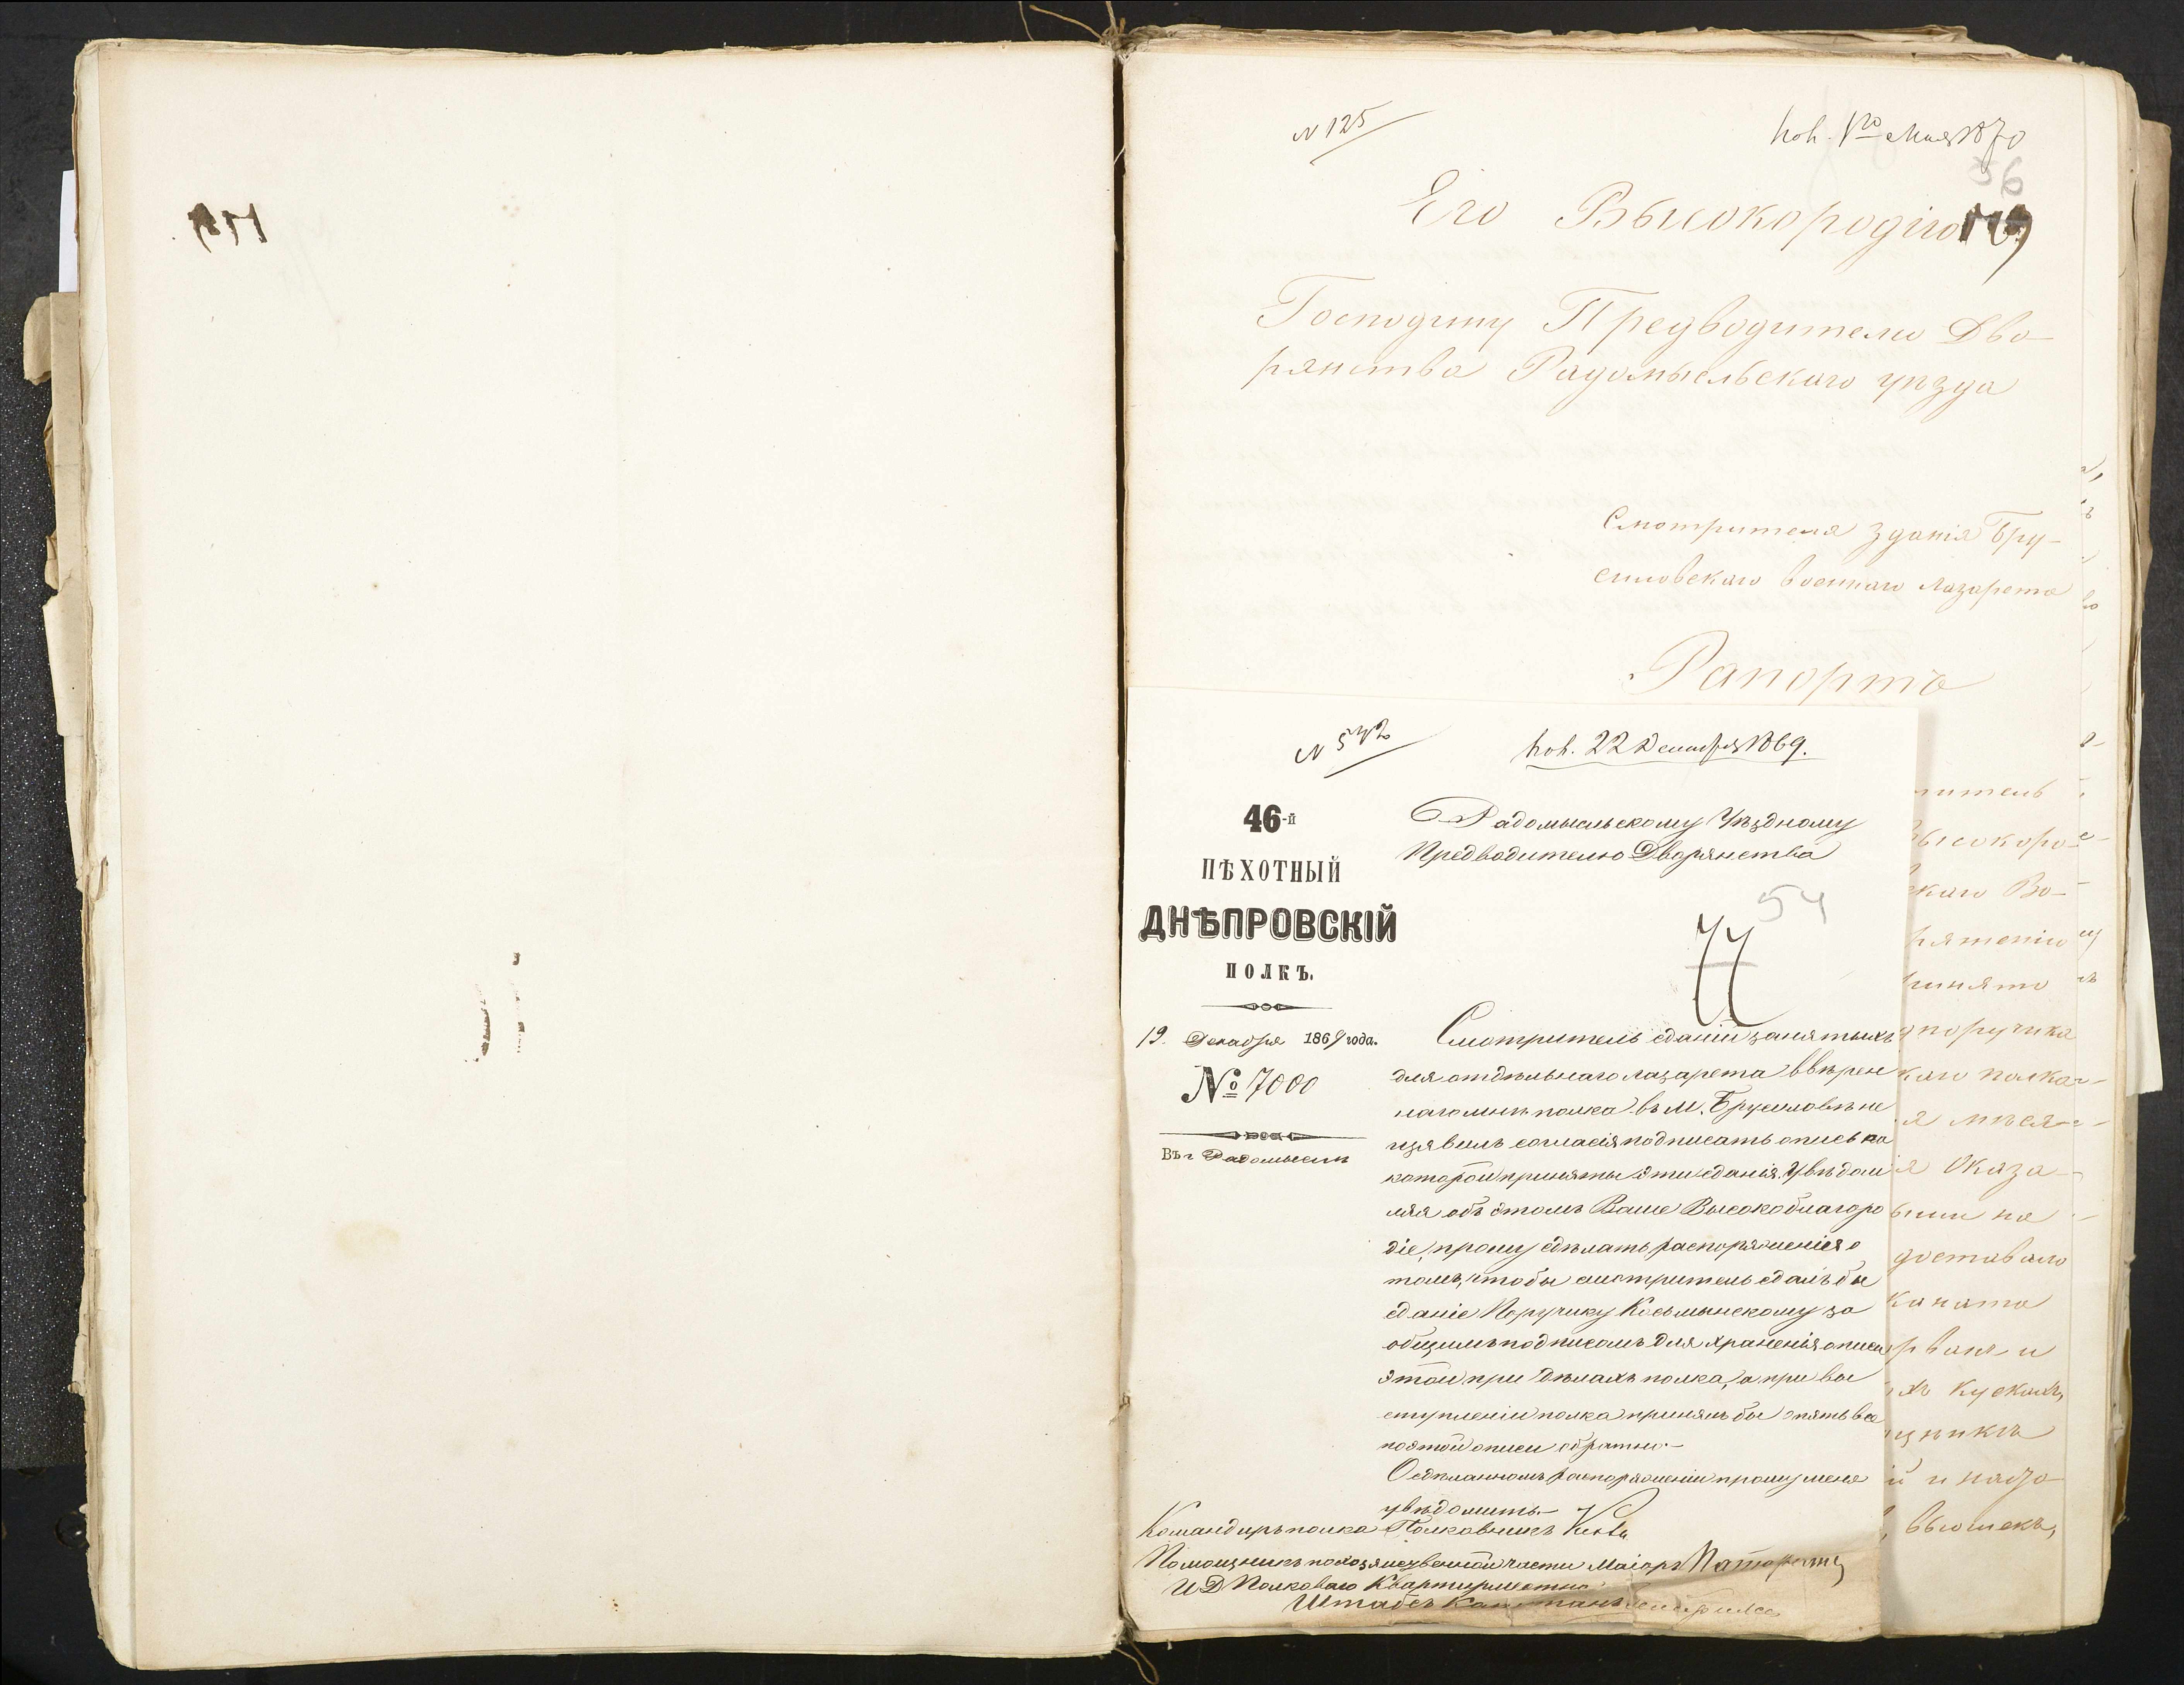 N 125
пол. 1го Мая 1870
56
Его Высокородію
Господину Предводителю Дво-
рянства Радомысльскаго уѣзда
Смотрителя зданія Бру-
силовскаго военнаго лазарета
Рапортъ
N 542
пол. 22 Декабря 1869.
46-й
ПѢХОТНЫЙ
ДНѢПРОВСКІЙ
ПОЛКЪ.
19. Декабря 1869 года.
№ 7000
Въ г. Радомыслѣ
Радомысльскому Уѣздному
Предводителю Дворянства
54
77
Смотритель зданій занятыхъ
для отдѣльнаго лазарета ввѣрен
наго мнѣ полка въ М. Брусиловѣ не
изявилъ согласія подписать опись по
которой приняты эти зданія. Увѣдом
ляя объ этомъ Ваше Высокоблагоро
діе, прошу сдѣлать распоряженіе о
томъ, чтобы смотритель сдалъ бы
зданіе Поручику Косьминскому за
общимъ подписомъ для храненія описи
этой при дѣлахъ полка, а при вы
ступленіи полка принялъ бы опять все
по этой описи обратно.-
О сдѣланномъ распоряженіи прошу меня
увѣдомить.-
Командиръ полка Полковникъ
Помощникъ по хозяйственной части Маіоръ
И Д Полковаго Квартирмистра
Штабсъ Капитанъ
питель
Высокоро-
скаго Во-
ряженію
принято
поручика
каго полка
я мѣся-
я Оказа-
были не
доставало
каната
рваня и
хъ кускахъ,
й и надо
, вьюшекъ,